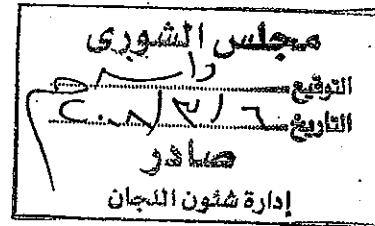 مجلس الشورى
التوقيع
التاريخ ٢٠٠٨/٣/٦
صادر
إدارة شئون اللجان